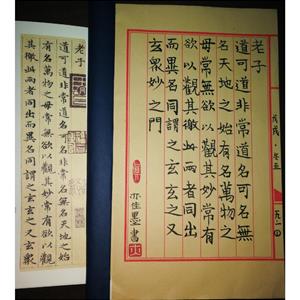 老子
道可道非常道名可名無
名天地之始有名萬物之
母常無欲以觀其妙常有
欲以觀其徼此兩者同出
而異名同謂之玄玄之又
玄衆妙之門
老子
道可道非常道名可名無名天地之始
有名萬物之母常無欲以觀其妙常有欲以觀
其徼此兩者同出而異名同謂之玄玄之又玄衆